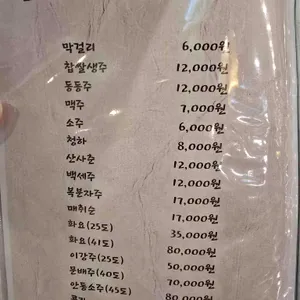 막걸리 6,000원
찹쌀생주 12,000원
동동주 12,000원
맥주 7,000원
소주 6,000원
청하 8,000원
산사춘 12,000원
백세주 12,000원
복분자주 17,000원
매취순 17,000원
화요(25도) 35,000원
화요(41도) 80,000원
이강주(25도) 50,000원
문배주(40도) 70,000원
안동소주(45도) 80,000원